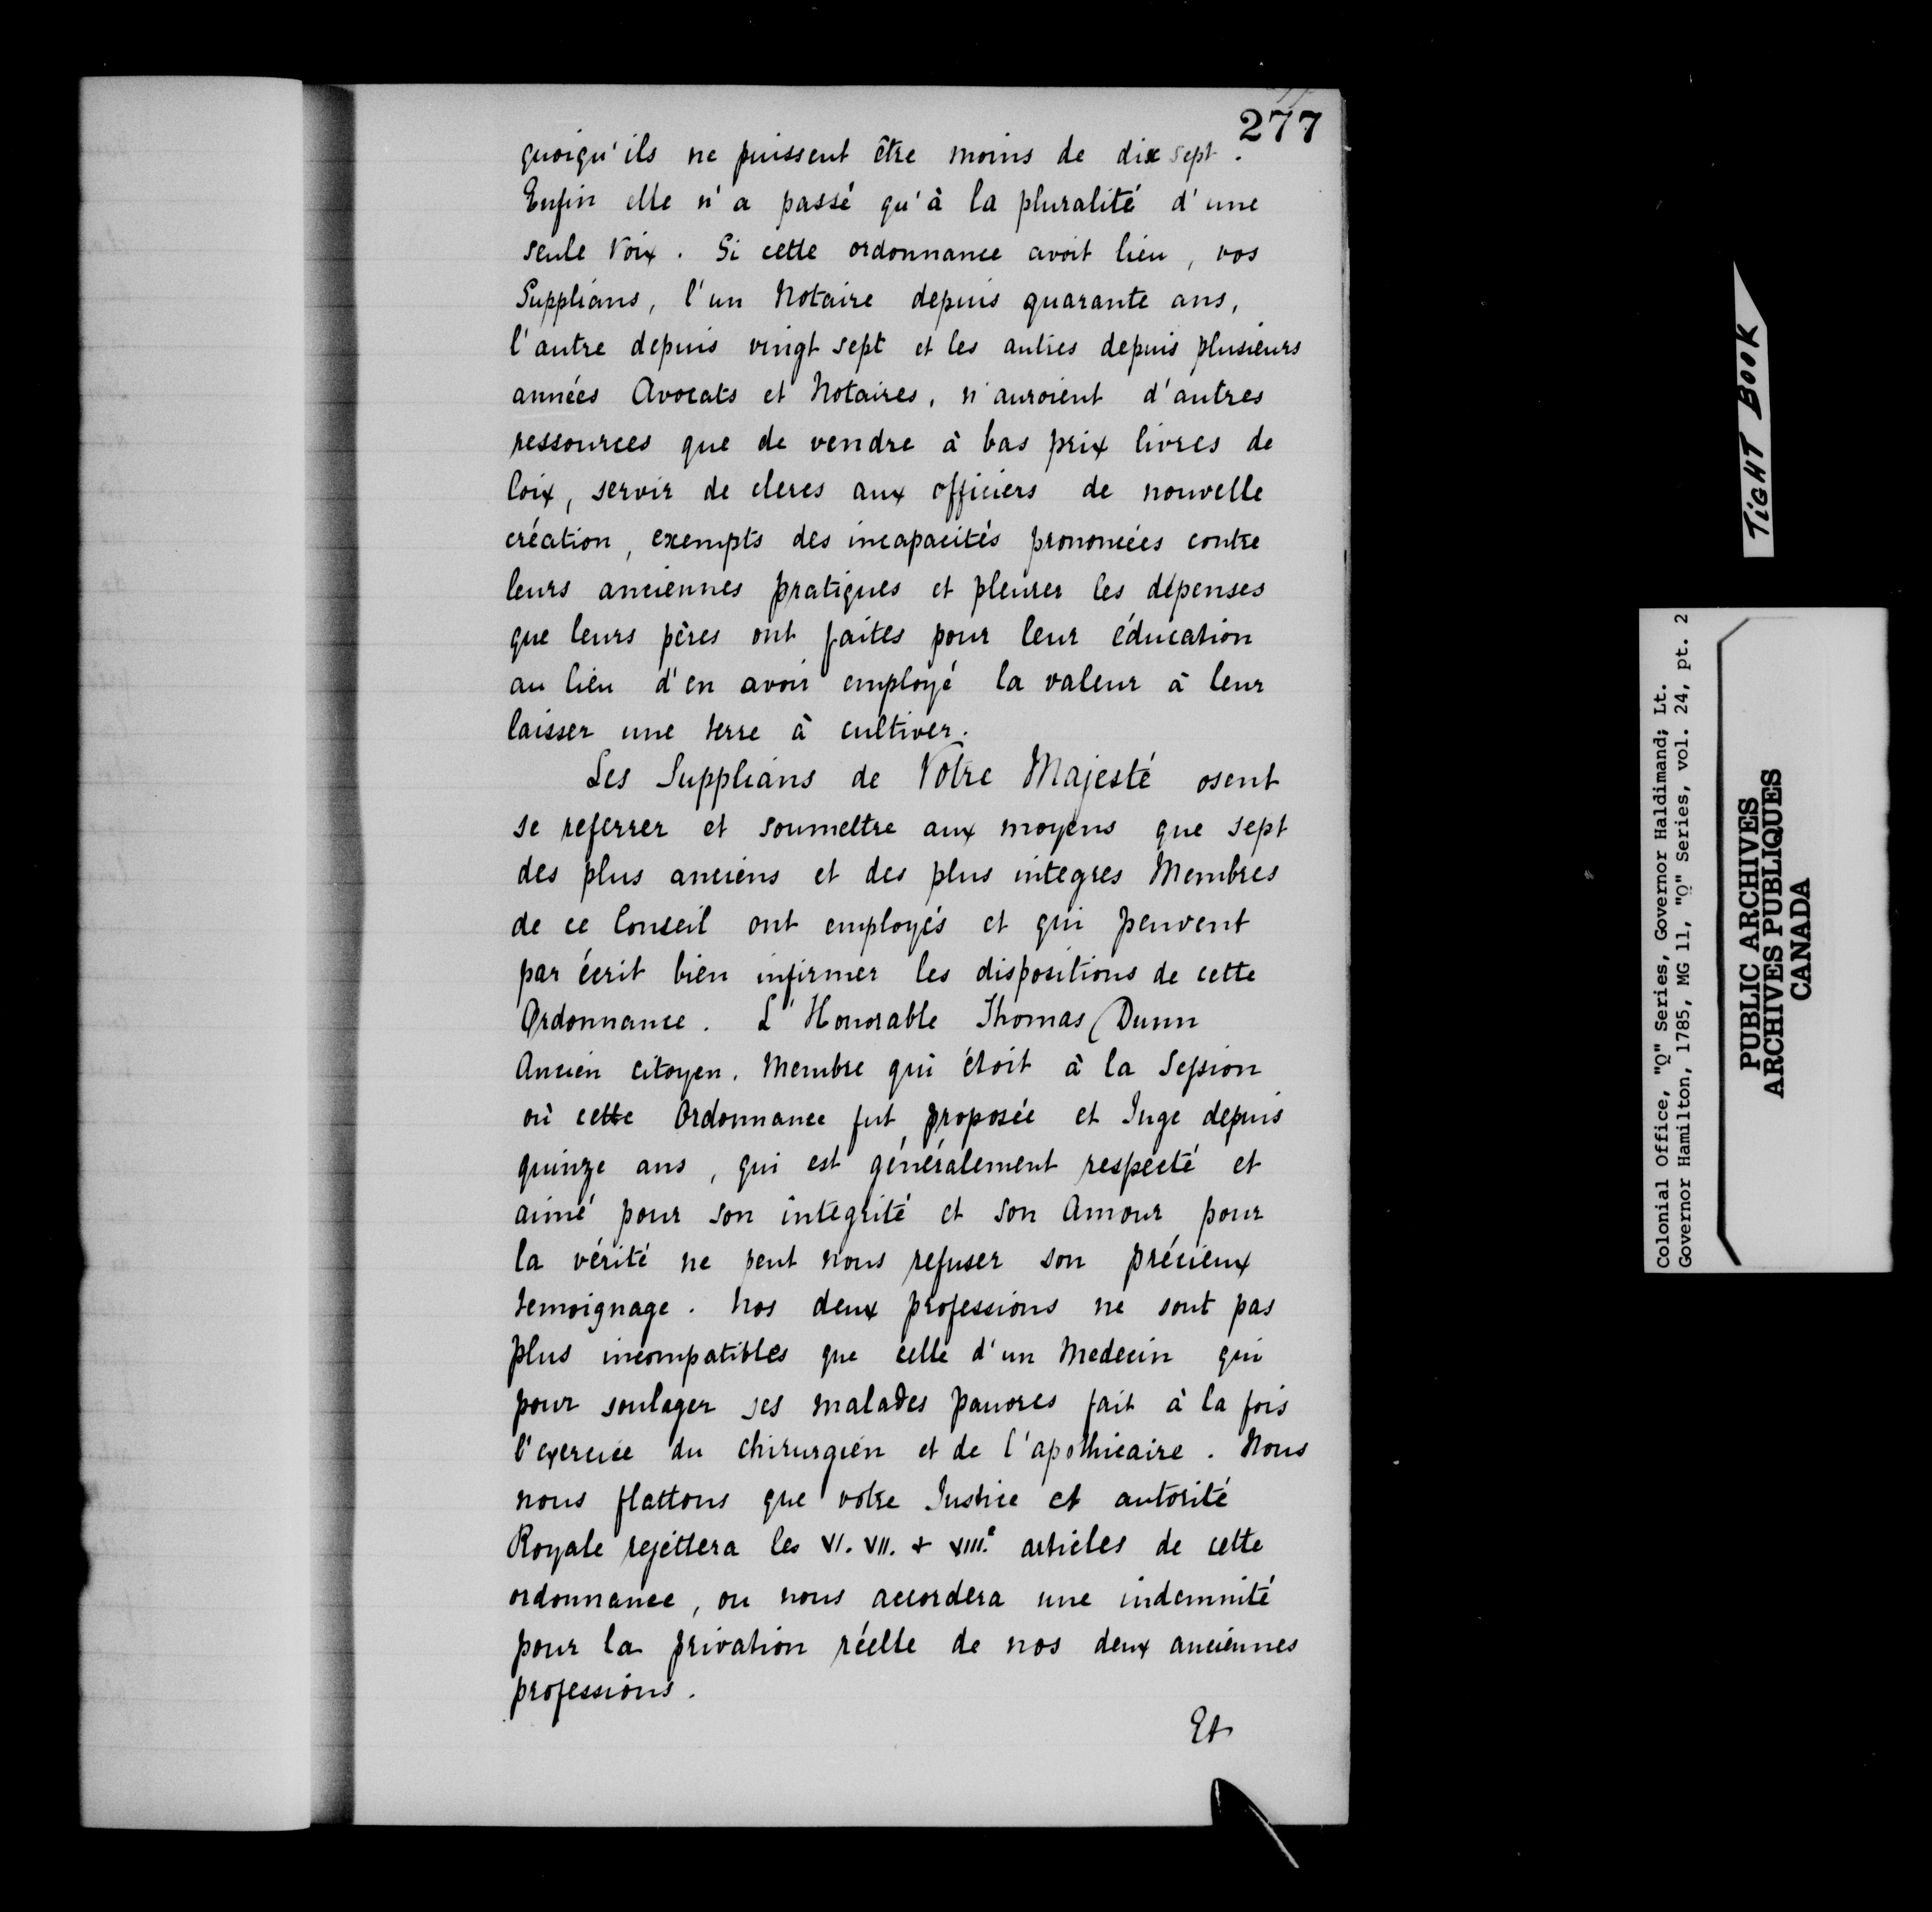 277
quoiqu'ils ne puissent être moins de dix sept.
Enfin elle n'a passé qu'à la pluralité d'une
seule Voix. Si cette ordonnance avoit lieu, vos
Supplians, l'un Notaire depuis quarante ans,
l'autre depuis vingt sept et les autres depuis plusieurs
années Avocats et Notaires, n'auroient d'autres
ressources que de vendre à bas prix livres de
loix, servir de clercs aux officiers de nouvelle
création, exempts des incapacités prononcées contre
leurs anciennes pratiques et pleurer les dépenses
que leurs pères ont faites pour leur éducation
au lieu d'en avoir employé la valeur à leur
laisser une terre à cultiver.
Les Supplians de Votre Majesté osent
se referrer et soumettre aux moyens que sept
des plus anciens et des plus integres Membres
de ce Conseil ont employés et qui peuvent
par écrit bien infirmer les dispositions de cette
Ordonnance. L'Honorable Thomas Dunn
Ancien citoyen, Membre qui étoit à la Session
où cette Ordonnance fut proposée et Juge depuis
quinze ans, qui est généralement respecté et
aimé pour son intégrité et son Amour pour
la vérité ne peut nous refuser son précieux
temoignage. Nos deux professions ne sont pas
plus incompatibles que celle d'un Medecin qui
pour soulager ses malades pauvres fait à la fois
l'exercice du chirurgien et de l'apothicaire. Nous
nous flattons que votre Justice et autorité
Royale rejettera les VI. VII. & VIII.e articles de cette
ordonnance, ou nous accordera une indemnité
pour la privation réelle de nos deux anciennes
professions.
Et
TIGHT BOOK
Colonial Office, "Q" Series, Governor Haldimand; Lt.
Governor Hamilton, 1785, MG 11, "Q" Series, vol. 24, pt. 2
PUBLIC ARCHIVES
ARCHIVES PUBLIQUES
CANADA